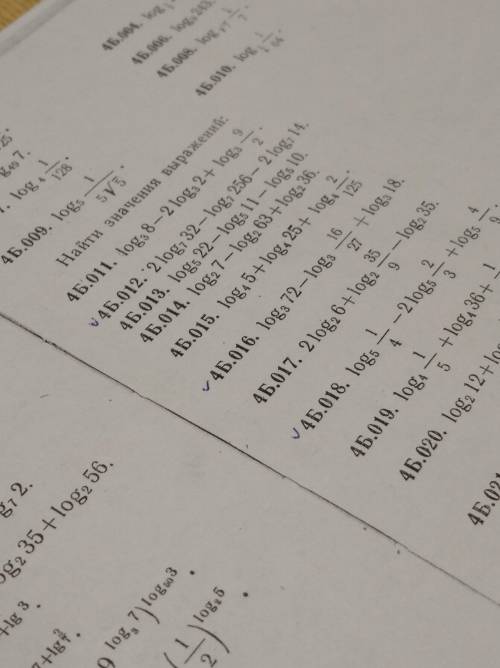 4Б.004. log
4Б.006. log₉ 243.
4Б.008. log√7 1/7.
4Б.010. log 1/64.
25.
log₄ 1/128.
4Б.009. log₅ 1/(5√5).
Найти значения выражений:
4Б.011. log₃ 8 − 2 log₃ 2 + log₃ 9/2.
4Б.012. 2 log₇ 32 − log₇ 256 − 2 log₇ 14.
4Б.013. log₅ 22 − log₅ 11 − log₅ 10.
4Б.014. log₂ 7 − log₂ 63 + log₂ 36.
4Б.015. log₄ 5 + log₄ 25 + log₄ 2/125.
4Б.016. log₃ 72 − log₃ 16/27 + log₃ 18.
4Б.017. 2 log₂ 6 + log₂ 35/9 − log₂ 35.
4Б.018. log₅ 1/4 − 2 log₅ 2/3 + log₅ 4/
4Б.019. log₄ 1/5 + log₄ 36 + 1
4Б.020. log₂ 12 + log
4Б.021
g₇ 2.
og₂ 35 + log₂ 56.
+ lg 3.
7 + lg
9 log₃ 7) log₅₀ 3.
(1/2) log₂ 5